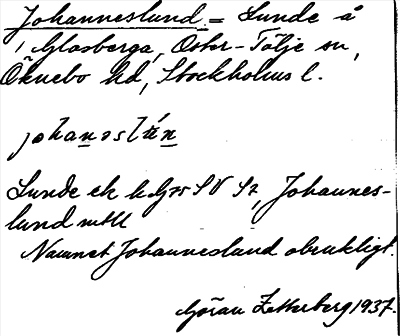 Johanneslund = Lunde å
i Glasberga, Öster-Tälje sn,
Öknebo hd, Stockholms l.
johanəslún
Lunde ek k G 75 SV S2, Johannes-
lund mtll
Namnet Johanneslund obrukligt.
Göran Zetterberg 1937.